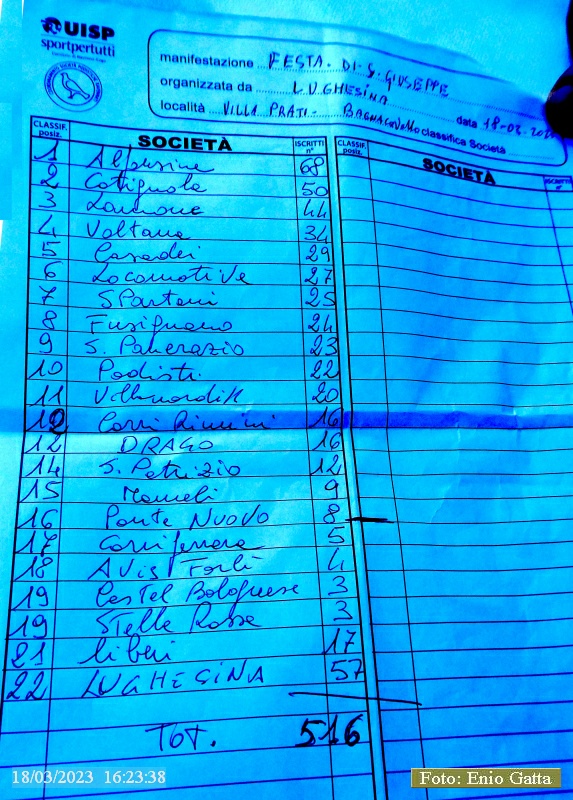 UISP
sportpertutti
manifestazione FESTA. DI. S. GIUSEPPE
organizzata da LUGHESINA
località VILLA PRATI - BAGNACAVALLO data 18-03-
classifica Società
CLASSIF. posiz. SOCIETÀ ISCRITTI n° CLASSIF. posiz. SOCIETÀ ISCRITTI n°
1 Alfonsine 68
2 Cotignola 50
3 Lamone 44
4 Voltana 34
5 Casadei 29
6 Locomotive 27
7 SPartani 25
8 Fusignano 24
9 S. Pancrazio 23
10 Podisti 22
11 Villanordik 20
12 Corri Rimini 16
12 DRAGO 16
14 S. Patrizio 12
15 Mameli 9
16 Ponte NUOVO 8
17 Corriferrara 5
18 AVIS Forlì 4
19 Castel Bolognese 3
19 Stella Rossa 3
21 liberi 17
22 LUGHESINA 57
TOT. 516
18/03/2023 16:23:38
Foto: Enio Gatta